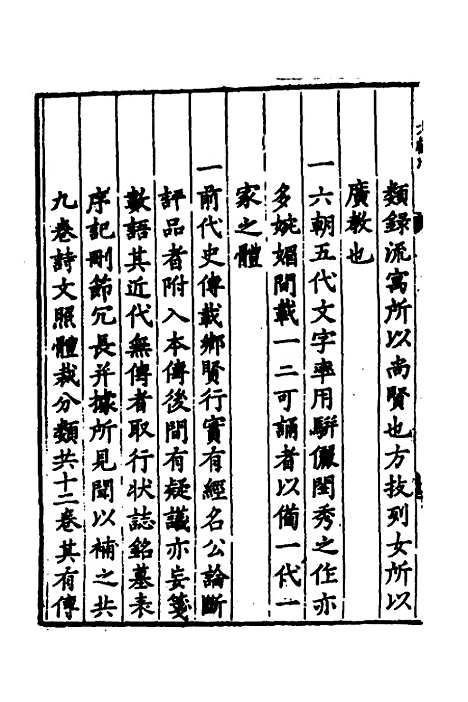 類錄流寓所以尚賢也方技列女所以
廣教也
一六朝五代文字率用駢儷閨秀之作亦
多婉媚間載一二可誦者以備一代一
家之體
一前代史傳載鄉賢行實有經名公論斷
評品者附入本傳後間有疑議亦妄箋
數語其近代無傳者取行狀誌銘墓表
序記刪節冗長并據所見聞以補之共
九卷詩文照體裁分類共十二卷其有傳